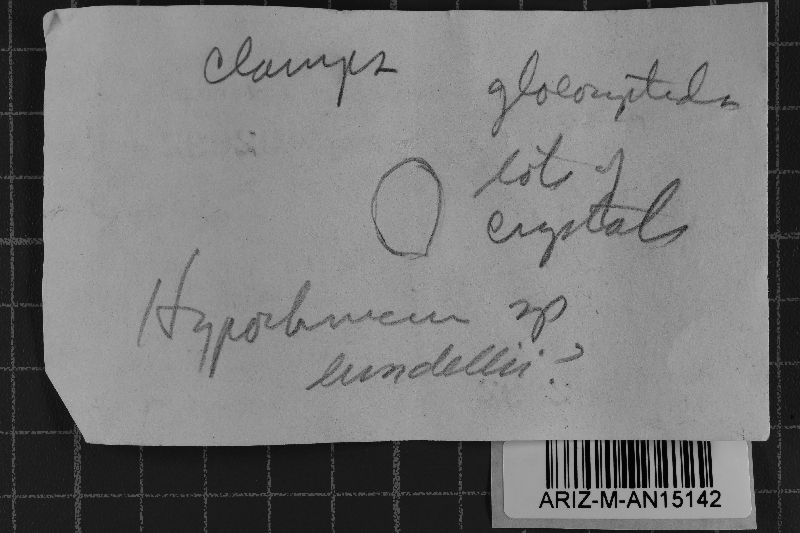 clamps
gloeocystidia
lots of
crystals
Hypochnicium sp
lundellii?
ARIZ-M-AN15142